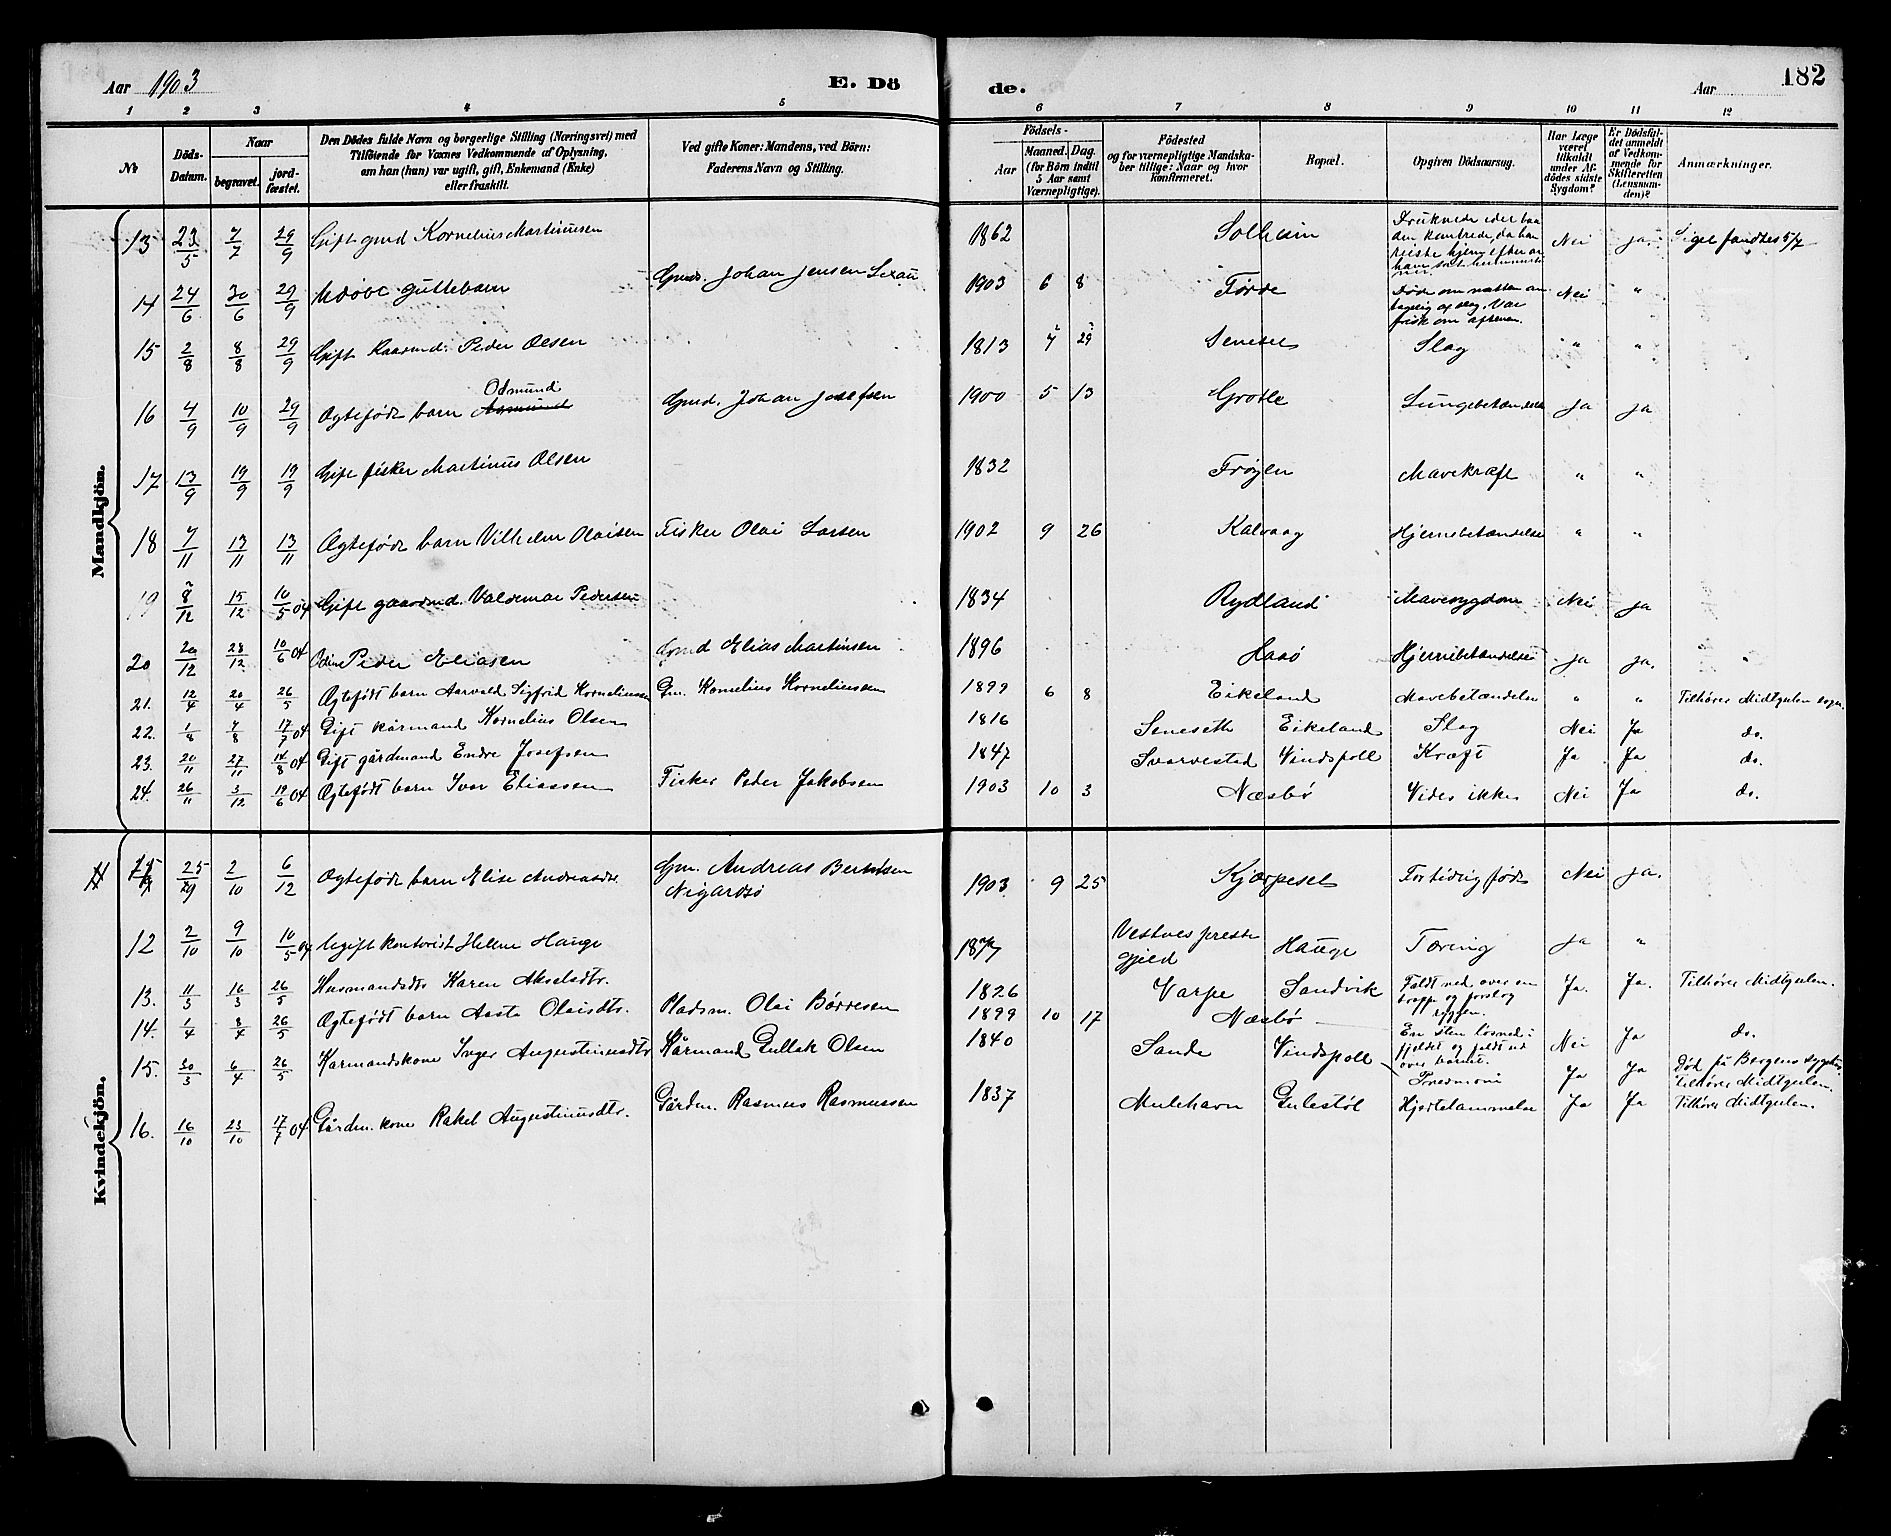 Aar 1903 E. Dö de. Aar 182
1 2 3 4 5 6 7 8 9 10 11 12
No Döds-Datum. Naar begravet. jordfæstet. Den Dödes fulde Navn og borgerlige Stilling (Næringsvei) med Tilföiende for Voxnes Vedkommende af Oplysning, om han (hun) var ugift, gift, Enkemand (Enke) eller fraskilt. Ved gifte Koner: Mandens, ved Börn: Faderens Navn og Stilling. Födsels- Aar Maaned. Dag. (for Börn indtil 5 Aar samt Værnepligtige). Födested og for værnepligtige Mandskaber tillige: Naar og hvor konfirmeret. Bopæl. Opgiven Dödsaarsag. Har Læge været tilkaldt under Afdödes sidste Sygdom? Er Dödsfaldet anmeldt af Vedkommende for Skifteretten (Lensmanden)? Anmærkninger.
Mandkjön.
13 23/5 7/7 29/9 Gift gmd Kornelius Martinusen 1862 Solheim Druknede idet baaden kantrede, da han Nei ja. Liget fandtes 5/7
14 24/6 30/6 29/9 Udøbt guttebarn Gmd. Johan Jensen 1903 6 8 Førde Døde om natten frisk om aftenen. Nei "
15 2/8 8/8 29/9 Gift Kaarmd. Peder Olsen 1813 7 29 Seneset Slag " "
16 4/9 10/9 29/9 Ægtefødt barn Asmund Odmund Gmd. Johan Josefsen 1900 5 13 Grotle Lungebetændelse ja ja
17 13/9 19/9 19/9 Gift fisker Martinus Olsen 1832 Frøyen Mavekræft " "
18 7/11 13/11 13/11 Ægtefødt barn Vilhelm Olaisen Fisker Olai Larsen 1902 9 26 Kalvaag Hjernebetændelse " "
19 8/12 15/12 10/5 04 Gift gaardmd. Valdemar Pedersen 1834 Rydland Mavesygdom Nei ja
20 20/12 28/12 10/6 04 Odin Peder Eliasen Gmd Elias Martinsen 1896 Haaø Hjernebetændelse ja ja. "
21. 12/4 20/4 26/5 Ægtefødt barn Aarvald Sigfrid Korneliussen Gm. Kornelius Korneliussen 1899 6 8 Eikeland Mavebetændelse " " Tilhører Midtgulen sogn.
22. 1/8 7/8 17/7 04 Gift kårmand Kornelius Olsen 1816 Seneseth Eikeland Slag Nei Ja do.
23. 20/11 27/11 14/8 04 Gift gårdmand Endre Josefsen 1847 Svarvested Vindspoll Kræft Ja Ja do.
24. 26/11 3/12 19/6 04 Ægtefødt barn Ivar Eliassen Fisker Peder Jakobsen 1903 10 3 Næsbø Vides ikke Nei Ja do.
Kvindekjön.
11 25/9 2/10 6/12 Ægtefødt barn Elise Andreasdtr. Gm. Andreas Berntsen Nigardsø 1903 9 25 Kjørpeset Fortidlig født Nei ja.
12 2/10 9/10 10/5 04 Ugift kontorist Helene Hauge Vestnes prestegjeld Hauge Tæring ja "
13. 11/3 16/3 26/5 Husmandsdtr Karen Akselsdtr. 1826 Varpe Sandvik Faldt ned over en trapp og forslog ryggen. Ja. Ja. Tilhører Midtgulen.
14. 1/4 8/4 26/5 Ægtefødt barn Aasta Olaisdtr. Pladsm. Olai Børresen 1899 10 17 Næsbø En sten løsnede i fjeldet og faldt ud over barnet. Nei Ja do.
15. 30/3 6/4 26/5 Kårmandskone Inger Augustinusdtr Kårmand Gullak Olsen 1840 Sande Vindspoll Pnevmoni Ja Ja Død på Bergens sygehus. Tilhører Midtgulen.
16. 16/10 23/10 17/7 04 Gårdm. kone Rakel Augustinusdtr. Gårdm. Rasmus Rasmussen 1837 Mulehavn Gulestøl Hjertelammelse Ja Ja Tilhører Midtgulen.